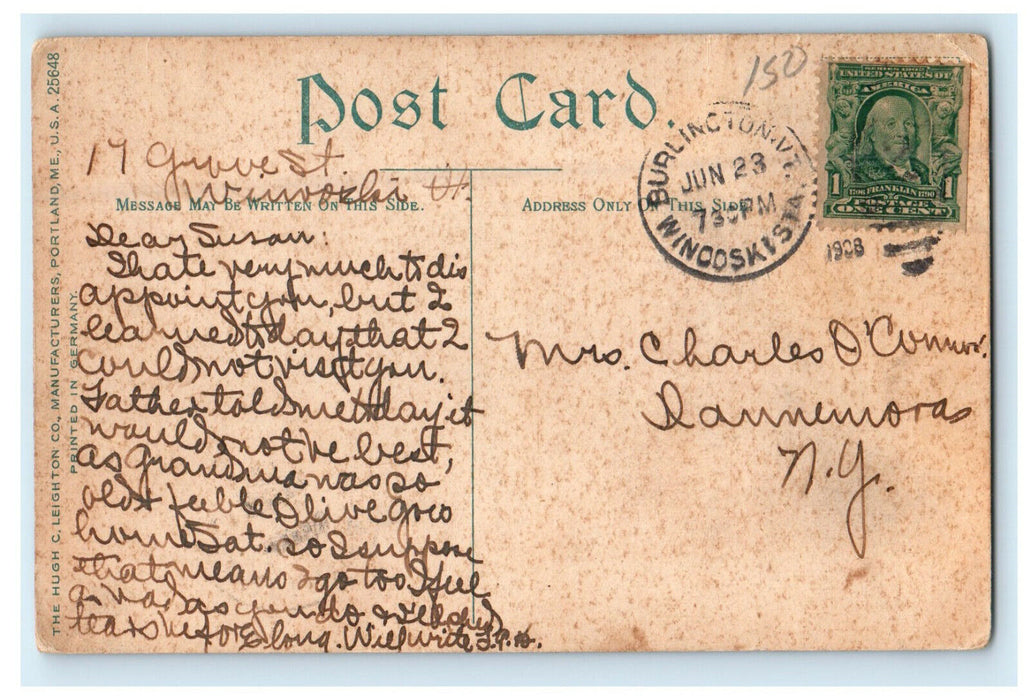 THE HUGH C. LEIGHTON CO., MANUFACTURERS, PORTLAND, ME., U.S.A. 25648
PRINTED IN GERMANY.
Post Card.
150
17 Grove St.
Winooski Vt.
MESSAGE MAY BE WRITTEN ON THIS SIDE.
ADDRESS ONLY ON THIS SIDE
BURLINGTON, VT.
JUN 23
730PM
WINOOSKI STA.
1908
SERIES 1902
UNITED STATES OF
AMERICA
1 1
1706 FRANKLIN 1790
POSTAGE
ONE CENT
Dear Susan:
I hate very much to dis
appoint you, but I
learned today that I
could not visit you.
Father told me today it
would not be best,
as Grandma was so
old & feeble Olive goes
home Sat. so I suppose
that means I go too I feel
as bad as you do & will shed
tears before long. Will write J.P.H.
Mrs. Charles O'Connor.
Dannemora
N.Y.